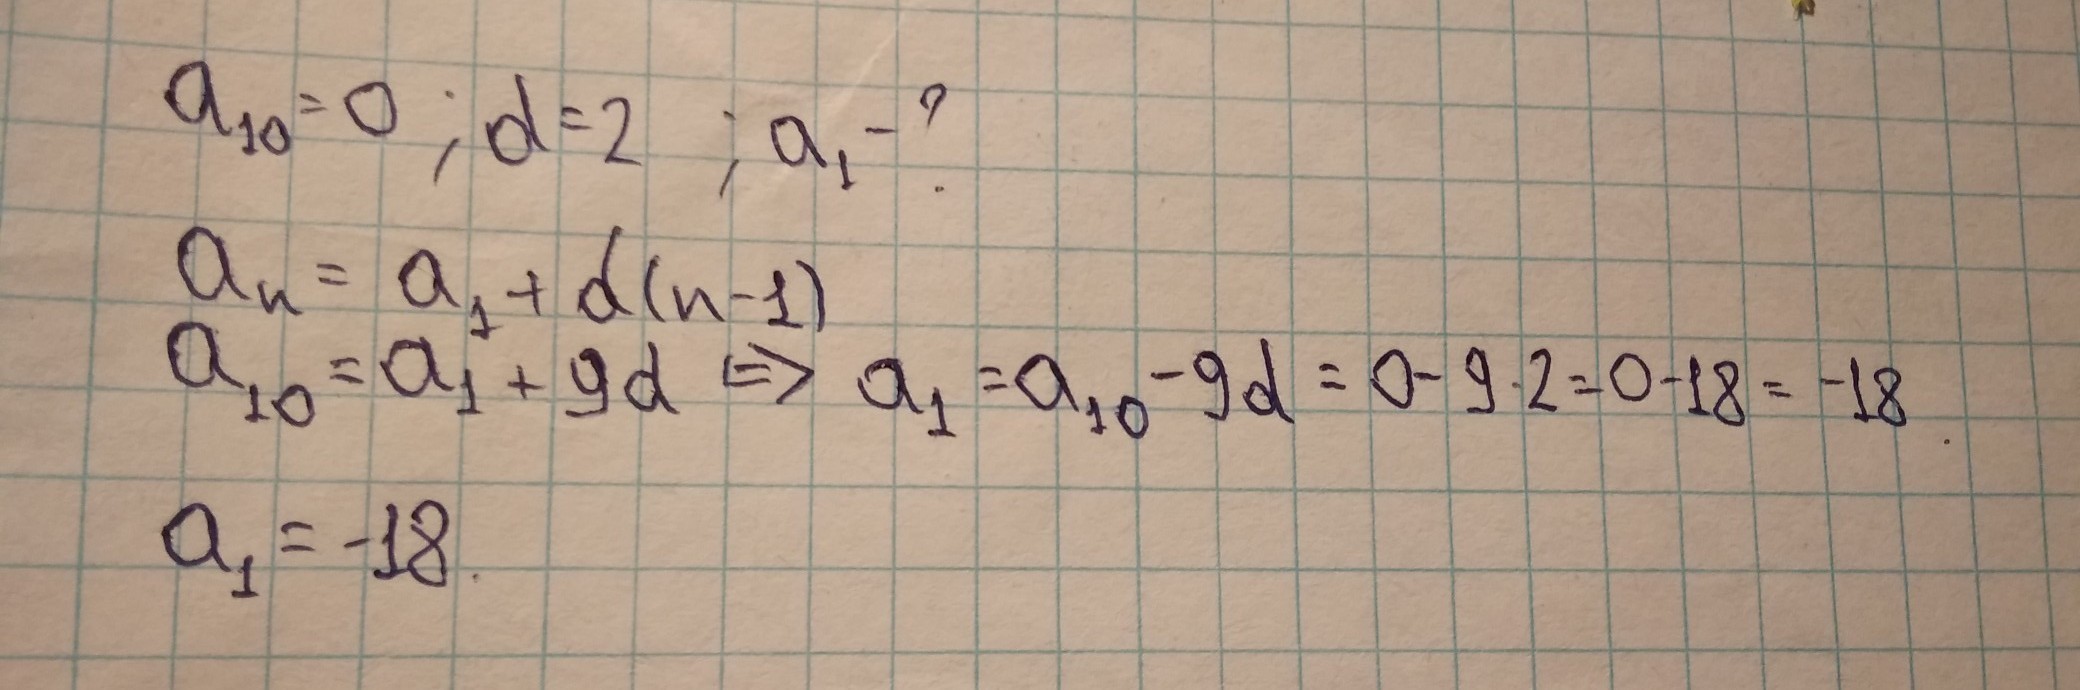 a₁₀=0 ; d=2 ; a₁-?
aₙ = a₁ + d(n-1)
a₁₀ = a₁ + 9d => a₁ = a₁₀ - 9d = 0 - 9·2 = 0 - 18 = -18.
a₁ = -18.